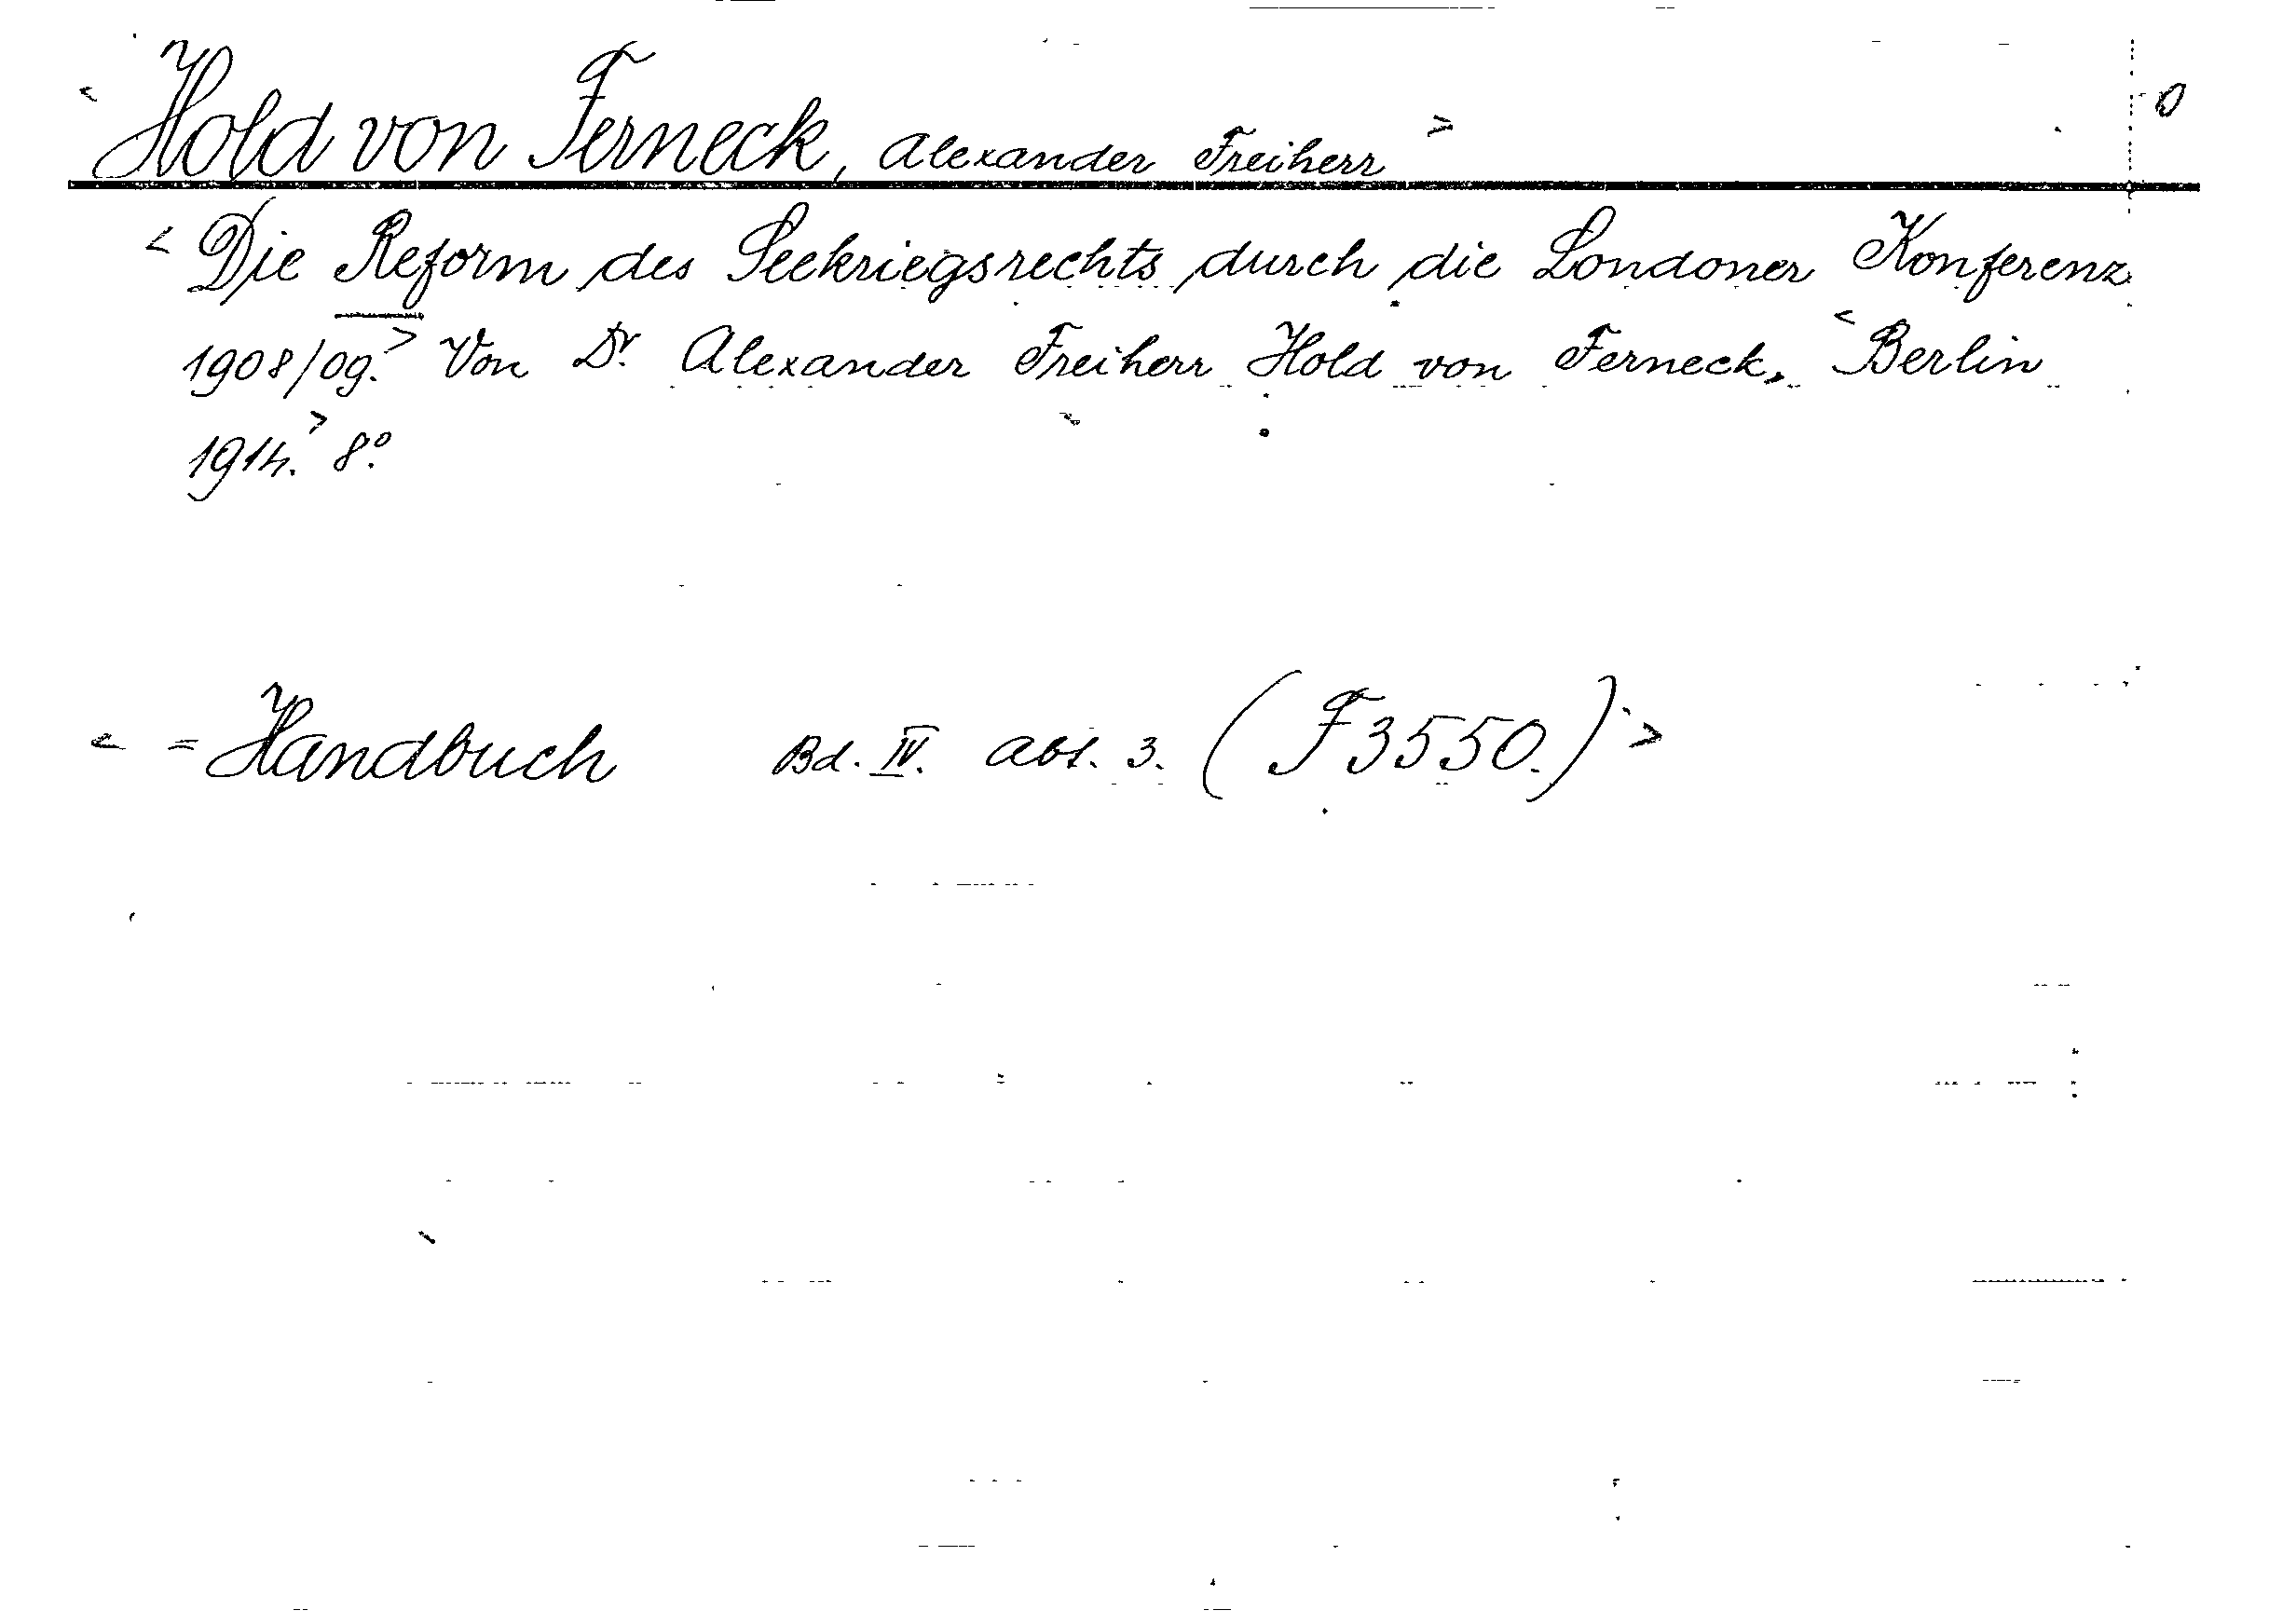 < Hold von Ferneck, Alexander Freiherr > 0
< Die Reform des Seekriegsrechts durch die Londoner Konferenz
1908/09. > Von Dr. Alexander Freiherr Hold von Ferneck. < Berlin
1914. > 8°.
< = Handbuch Bd. IV. Abt. 3. (F3550.) >